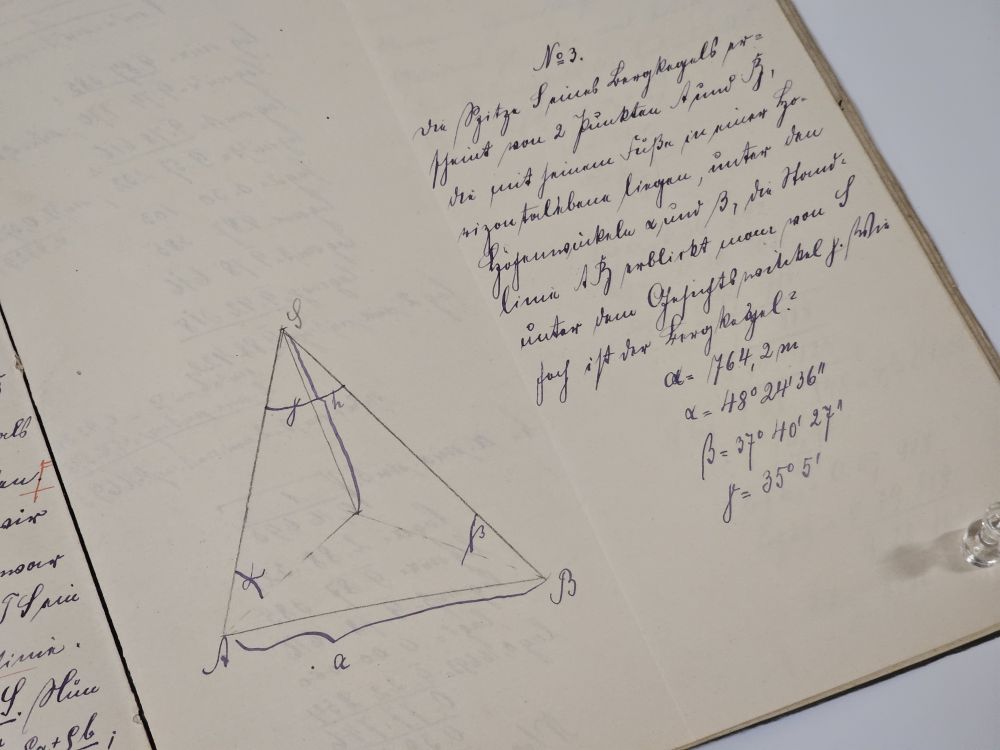 № 3.
Die Spitze S eines Bergkegels er=
scheint von 2 Punkten A und B,
die mit seinem Fuße in einer Ho-
rizontalebene liegen, unter den
Höhenwinkeln α und β, die Stand-
linie AB erblickt man von S
unter dem Gesichtswinkel γ. Wie
hoch ist der Bergkegel?
a = 764,2 m
α = 48° 24' 36"
β = 37° 40' 27"
γ = 35° 5'
S
γ
h
α
β
A
B
a
als
wir
linie.
S. Nun